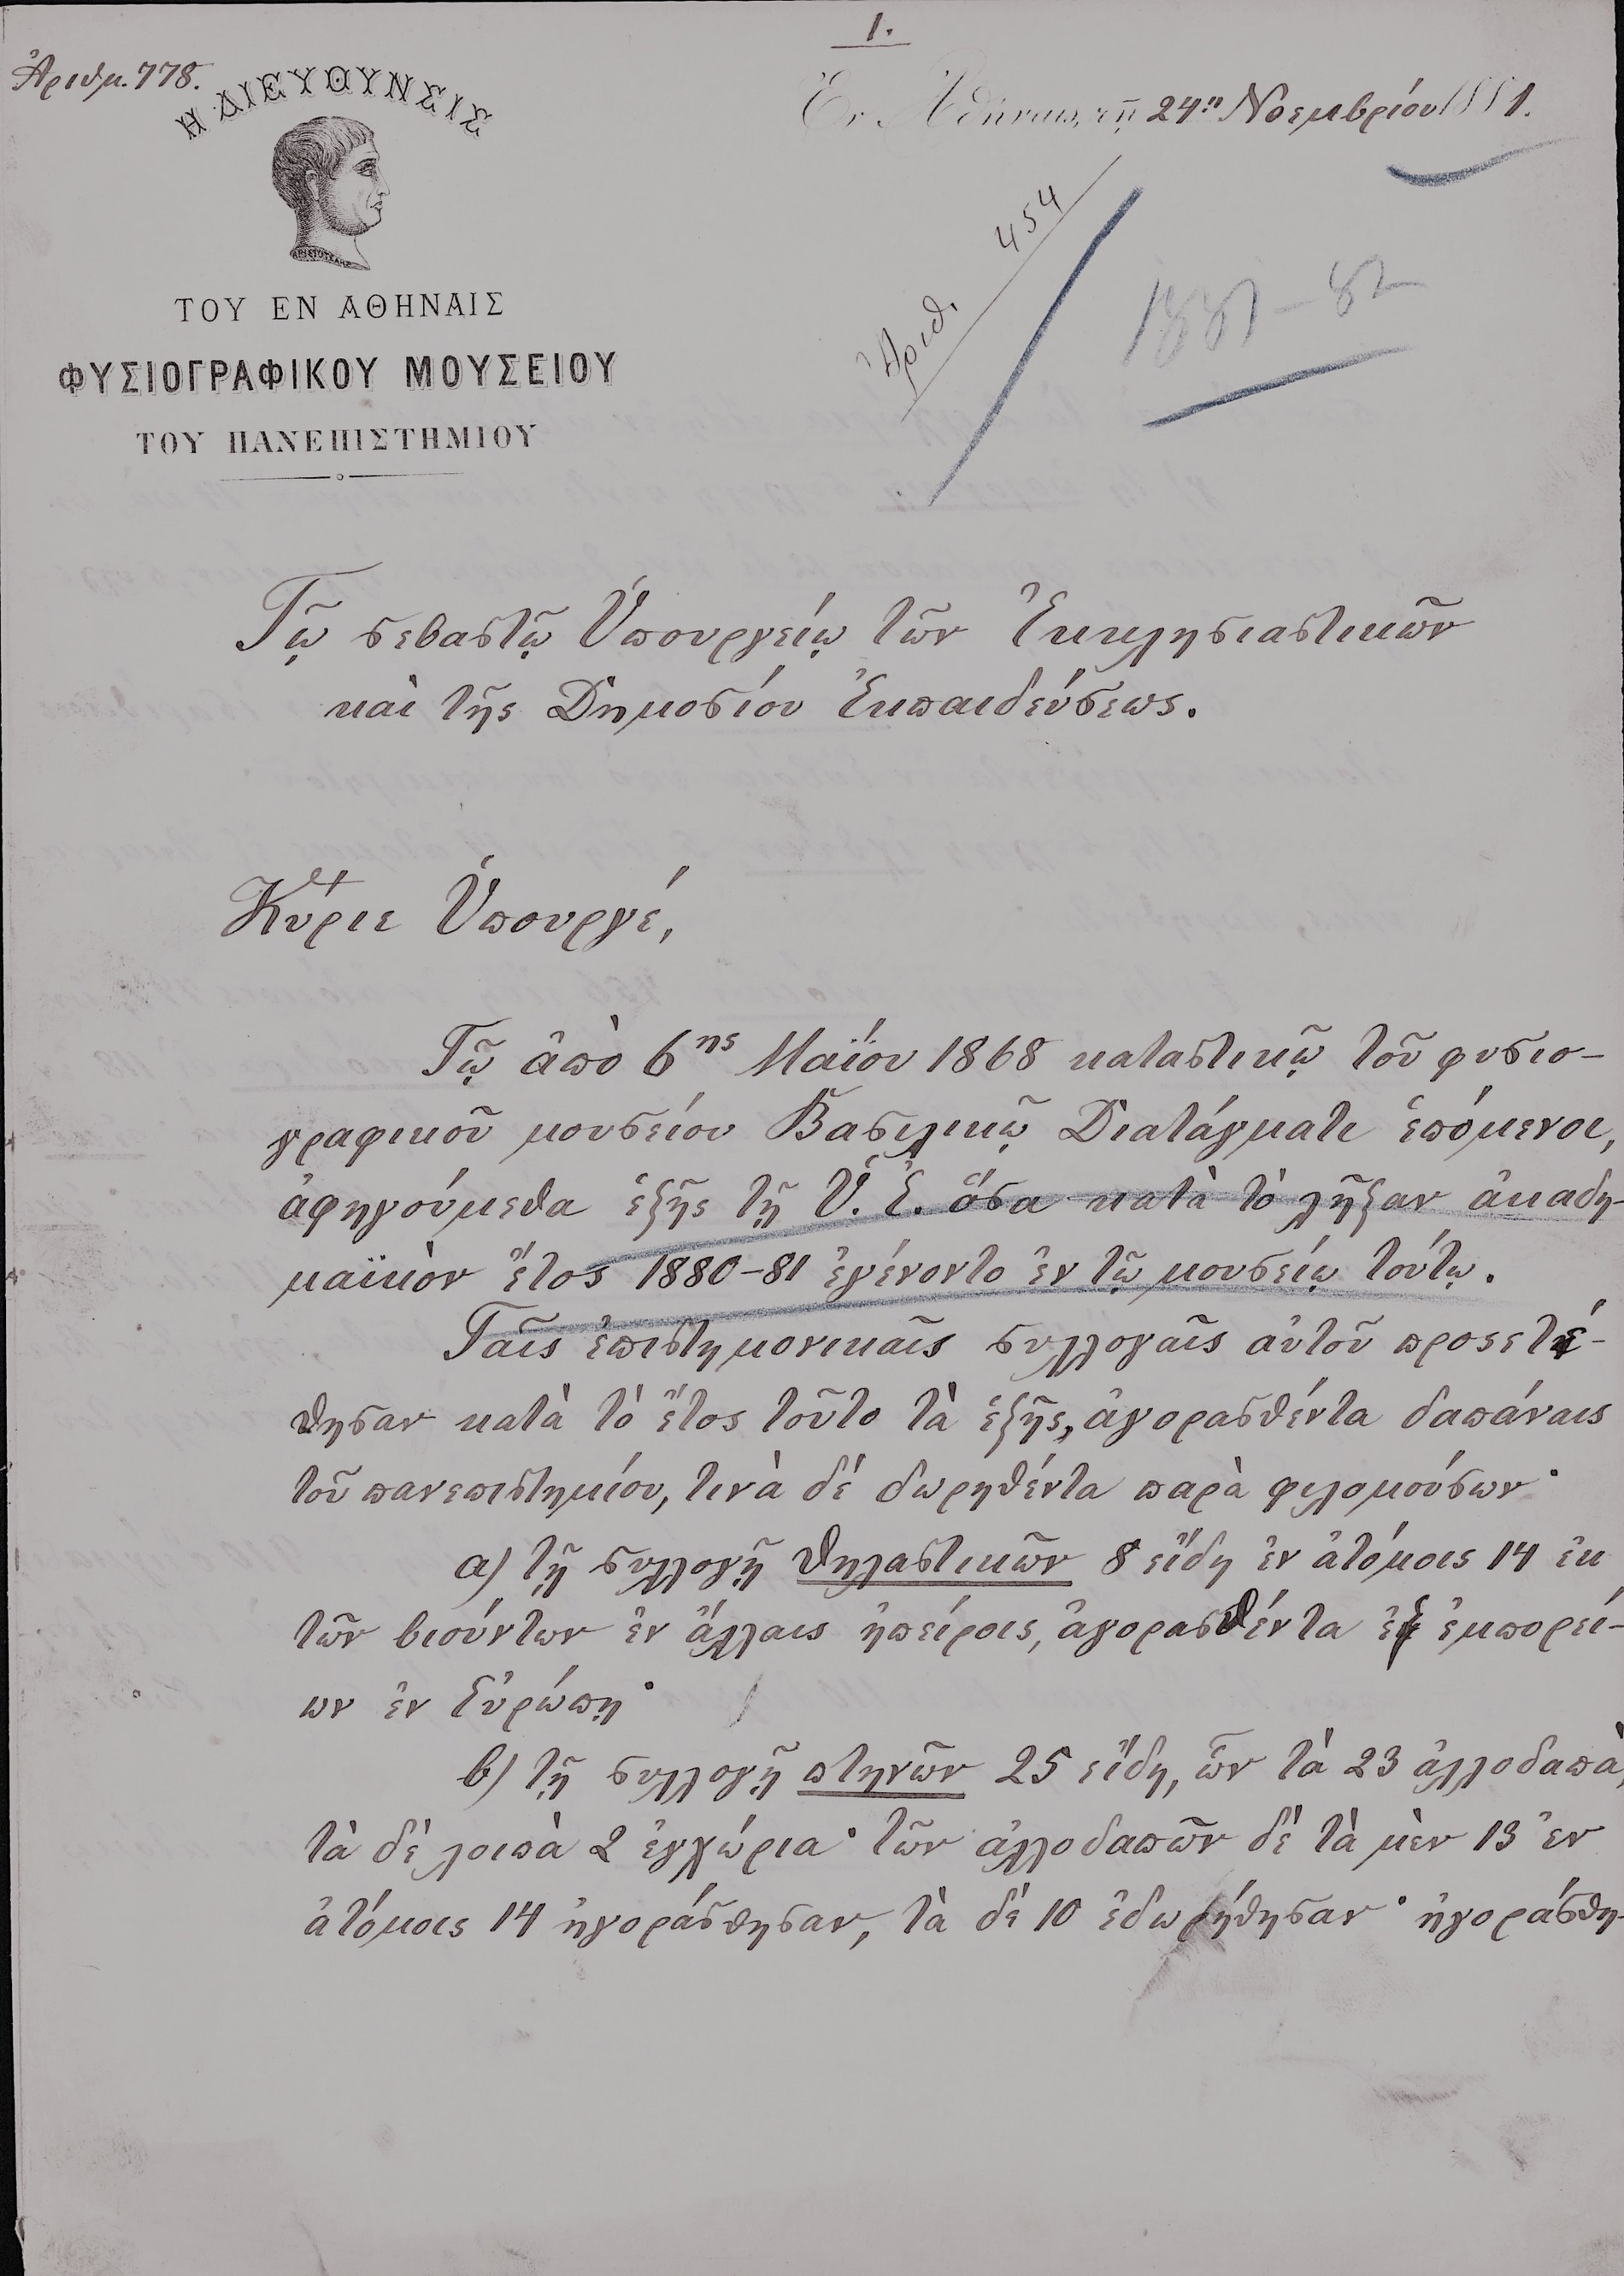 1.
Ἀριθμ. 778.
Η ΔΙΕΥΘΥΝΣΙΣ
Ἐν Ἀθήναις, τῇ 24ῃ Νοεμβρίου 1881.
ΑΡΙΣΤΟΤΕΛΗΣ
ΤΟΥ ΕΝ ΑΘΗΝΑΙΣ
ΦΥΣΙΟΓΡΑΦΙΚΟΥ ΜΟΥΣΕΙΟΥ
ΤΟΥ ΠΑΝΕΠΙΣΤΗΜΙΟΥ
Ἀριθ. 454
1881-82
Τῷ σεβαστῷ Ὑπουργείῳ τῶν Ἐκκλησιαστικῶν
καὶ τῆς Δημοσίου Ἐκπαιδεύσεως.
Κύριε Ὑπουργέ,
Τῷ ἀπὸ 6ης Μαΐου 1868 καταστικῷ τοῦ φυσιο-
γραφικοῦ μουσείου Βασιλικῷ Διατάγματι ἑπόμενοι,
ἀφηγούμεθα ἑξῆς τῇ Ὑ. Ἐ. ὅσα κατὰ τὸ λῆξαν ἀκαδη-
μαϊκὸν ἔτος 1880-81 ἐγένοντο ἐν τῷ μουσείῳ τούτῳ.
Ταῖς ἐπιστημονικαῖς συλλογαῖς αὐτοῦ προσετέ-
θησαν κατὰ τὸ ἔτος τοῦτο τὰ ἑξῆς, ἀγορασθέντα δαπάναις
τοῦ πανεπιστημίου, τινὰ δὲ δωρηθέντα παρὰ φιλομούσων·
α) τῇ συλλογῇ θηλαστικῶν 8 εἴδη ἐν ἀτόμοις 14 ἐκ
τῶν βιούντων ἐν ἄλλαις ἠπείροις, ἀγορασθέντα ἐξ ἐμπορεί-
ων ἐν Εὐρώπῃ·
β) τῇ συλλογῇ πτηνῶν 25 εἴδη, ὧν τὰ 23 ἀλλοδαπὰ,
τὰ δὲ λοιπὰ 2 ἐγχώρια· τῶν ἀλλοδαπῶν δὲ τὰ μὲν 13 ἐν
ἀτόμοις 14 ἠγοράσθησαν, τὰ δὲ 10 ἐδωρήθησαν· ἠγοράσθη-